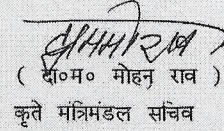 ( दा०म० मोहन राव )
कृते मंत्रिमंडल सचिव